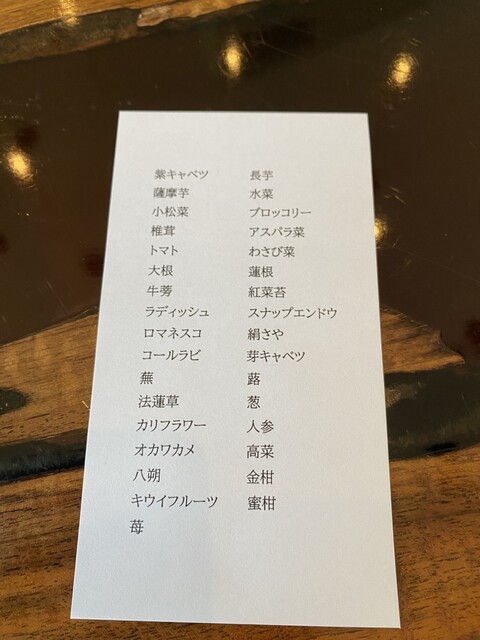 紫キャベツ
薩摩芋
小松菜
椎茸
トマト
大根
牛蒡
ラディッシュ
ロマネスコ
コールラビ
蕪
法蓮草
カリフラワー
オカワカメ
八朔
キウイフルーツ
苺
長芋
水菜
ブロッコリー
アスパラ菜
わさび菜
蓮根
紅菜苔
スナップエンドウ
絹さや
芽キャベツ
蕗
葱
人参
高菜
金柑
蜜柑